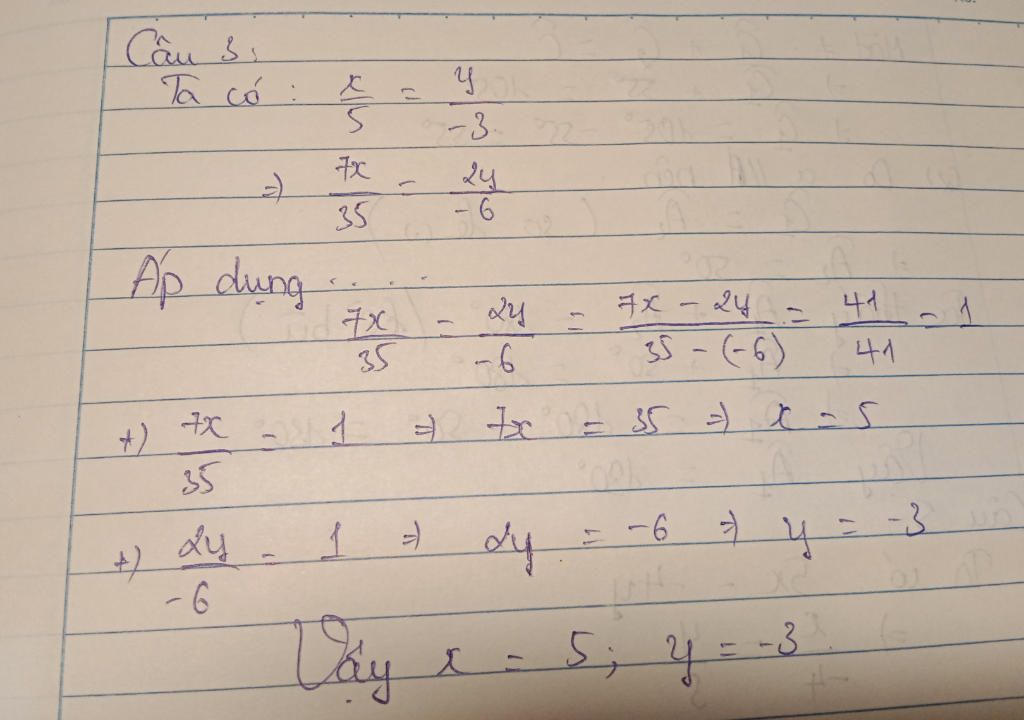 Câu 3:
Ta có: x/5 = y/-3
=> 7x/35 = 2y/-6
Áp dụng .....
7x/35 = 2y/-6 = 7x - 2y/35 - (-6) = 41/41 = 1
+) 7x/35 = 1 => 7x = 35 => x = 5
+) 2y/-6 = 1 => 2y = -6 => y = -3
Vậy x = 5; y = -3.